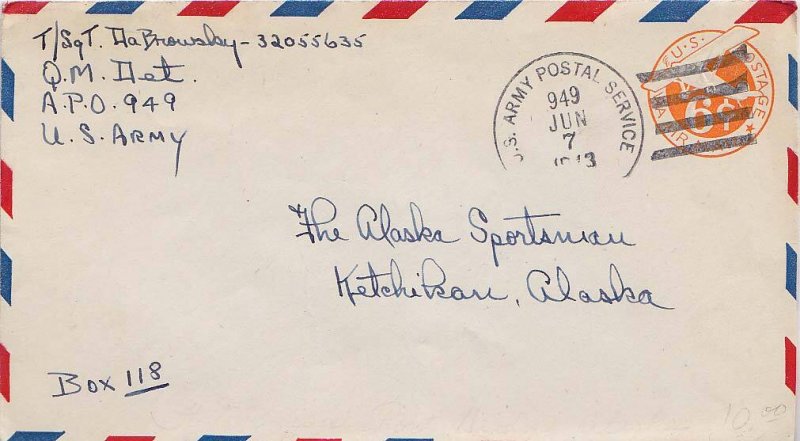 T/Sgt. DaBrowsky - 32055635
Q.M. Det.
A.P.O. 949
U.S. ARMY
U.S. ARMY POSTAL SERVICE
949
JUN
7
U.S. POSTAGE
AIR
6¢
The Alaska Sportsman
Ketchikan, Alaska
Box 118
10.00